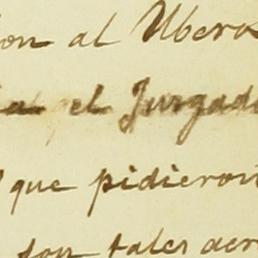 on al Ubera
la el Jurgad
que pidieron
son tales